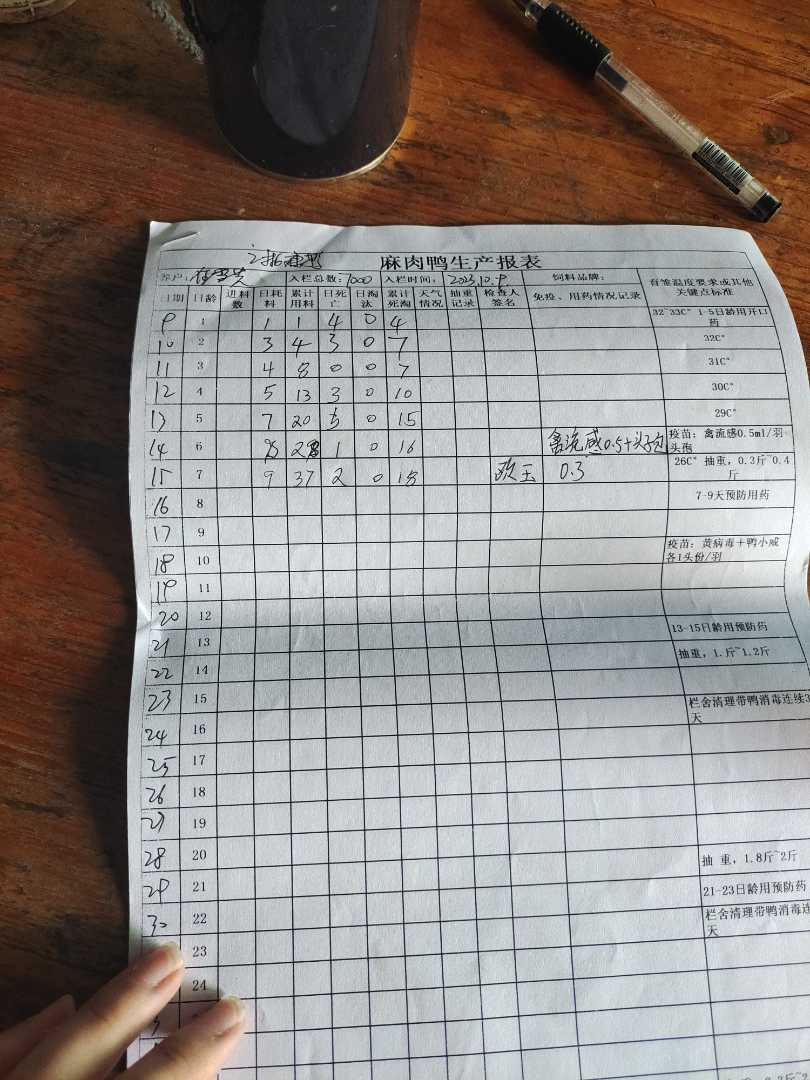 麻肉鸭生产报表
养户: 入栏总数:7000 入栏时间:2023.10.9 饲料品牌: 育雏温度要求或其他关键点标准
日期 日龄 进料数 日耗料 累计用料 日死亡 日淘汰 累计死淘 天气情况 抽重记录 检查人签名 免疫、用药情况记录
9 1 1 1 4 0 4 32~33C° 1-5日龄用开口药
10 2 3 4 3 0 7 32C°
11 3 4 8 0 0 7 31C°
12 4 5 13 3 0 10 30C°
13 5 7 20 5 0 15 29C°
14 6 8 28 1 0 16 禽流感0.5+头孢 疫苗: 禽流感0.5ml/羽
头孢
15 7 9 37 2 0 18 欧玉 0.3 26C° 抽重, 0.3斤~0.4
斤
16 8 7-9天预防用药
17 9
18 10 疫苗: 黄病毒+鸭小威
各1头份/羽
19 11
20 12
21 13 13-15日龄用预防药
22 14 抽重, 1.斤~1.2斤
23 15 栏舍清理带鸭消毒连续3
天
24 16
25 17
26 18
27 19
28 20 抽 重, 1.8斤~2斤
29 21 21-23日龄用预防药
30 22 栏舍清理带鸭消毒连
天
23
24